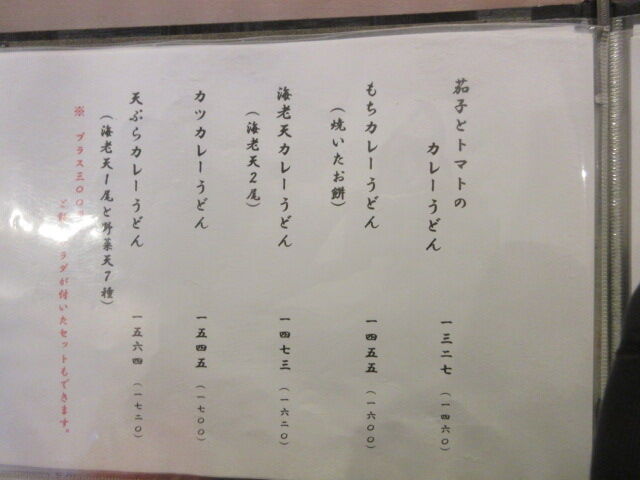 茄子とトマトの
カレーうどん 一三二七 (一四六〇)
もちカレーうどん 一四五五 (一六〇〇)
(焼いたお餅)
海老天カレーうどん 一四七三 (一六二〇)
(海老天2尾)
カツカレーうどん 一五四五 (一七〇〇)
天ぷらカレーうどん 一五六四 (一七二〇)
(海老天1尾と野菜天7種)
※ プラス三〇〇
ラダが付いたセットもできます。